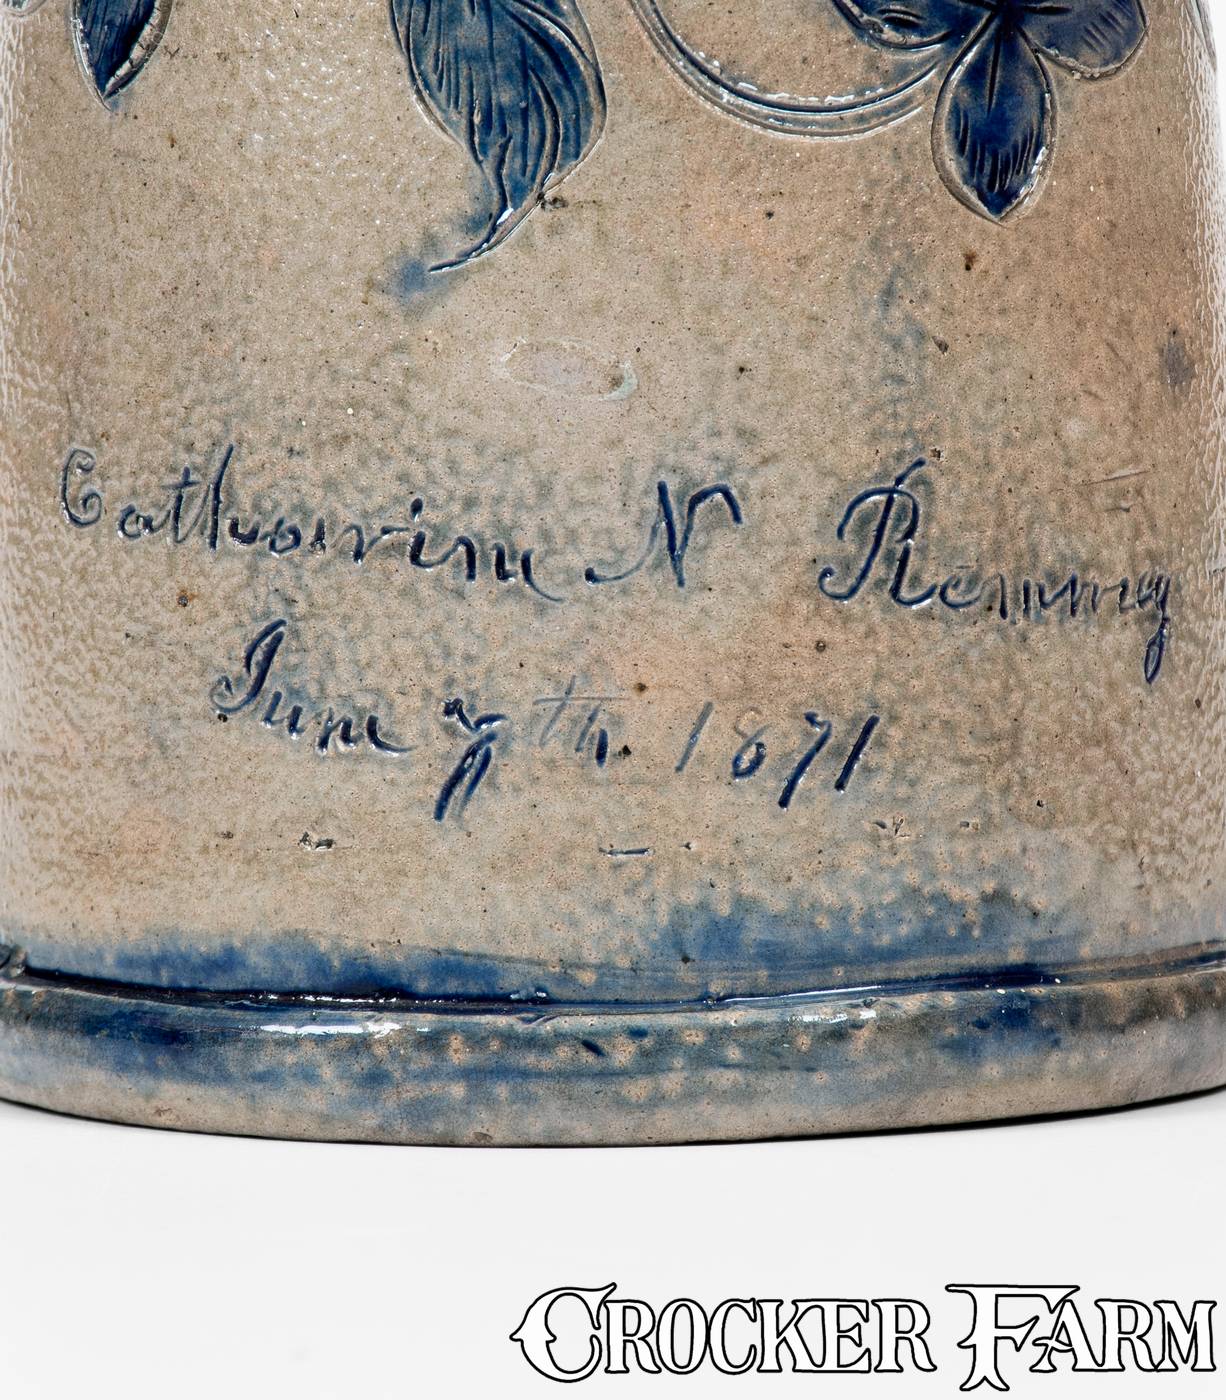 Catharine N Remmey
June 7th 1871
CROCKER FARM